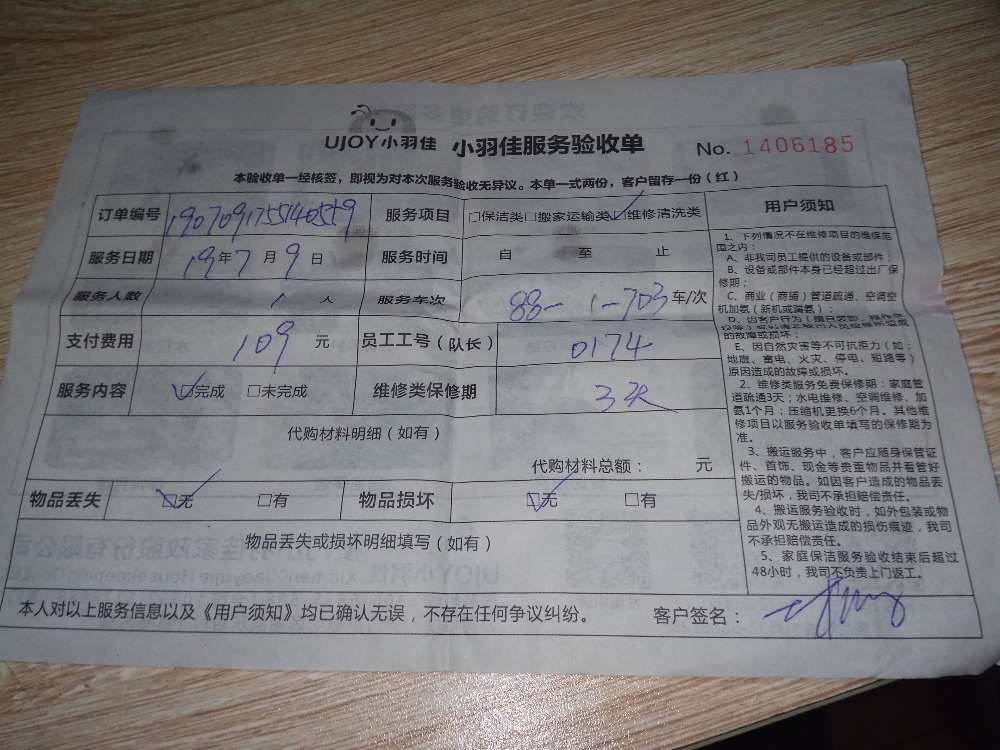 UJOY小羽佳 小羽佳服务验收单 No. 1406185
本验收单一经核签，即视为对本次服务验收无异议。本单一式两份，客户留存一份（红）
订单编号 190709175514055 服务项目 □保洁类□搬家运输类☑维修清洗类
服务日期 19年7月9日 服务时间 自 至 止
服务人数 1 人 服务车次 88-1-703 车/次
支付费用 109 元 员工工号（队长） 0174
服务内容 ☑完成 □未完成 维修类保修期 3天
代购材料明细（如有）
代购材料总额： 元
物品丢失 ☑无 □有 物品损坏 ☑无 □有
物品丢失或损坏明细填写（如有）
用户须知
1、下列情况不在维修项目的维保范
围之内：
A、非我司员工提供的设备或部件；
B、设备或部件本身已经超过出厂保
修期；
C、商业（商铺）管道疏通、空调空
机加氨（新机或漏氨）；
的故障或损坏；
E、因自然灾害等不可抗拒力（如：
地震、雷电、火灾、停电、短路等）
原因造成的故障或损坏。
2、维修类服务免费保修期：家庭管
道疏通3天；水电维修、空调维修、加
氨1个月；压缩机更换6个月。其他维
修项目以服务验收单填写的保修期为
准。
3、搬运服务中，客户应随身保管证
件、首饰、现金等贵重物品并看管好
搬运的物品。如因客户造成的物品丢
失/损坏，我司不承担赔偿责任。
4、搬运服务验收时，如外包装或物
品外观无搬运造成的损伤痕迹，我司
不承担赔偿责任。
5、家庭保洁服务验收结束后超过
48小时，我司不负责上门返工。
本人对以上服务信息以及《用户须知》均已确认无误，不存在任何争议纠纷。 客户签名：